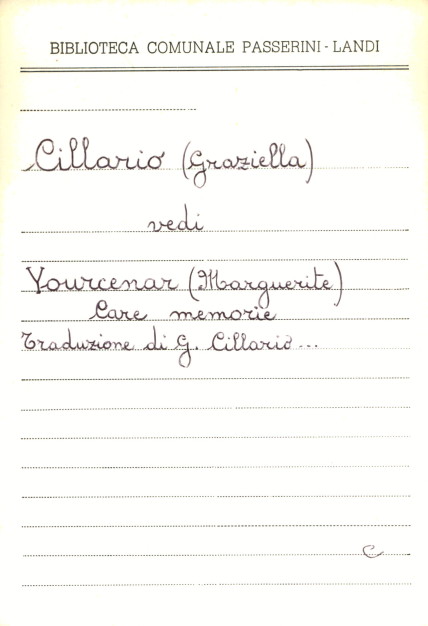 BIBLIOTECA COMUNALE PASSERINI - LANDI
Cillario (Graziella)
vedi
Yourcenar (Marguerite)
Care memorie
Traduzione di G. Cillario ...
C